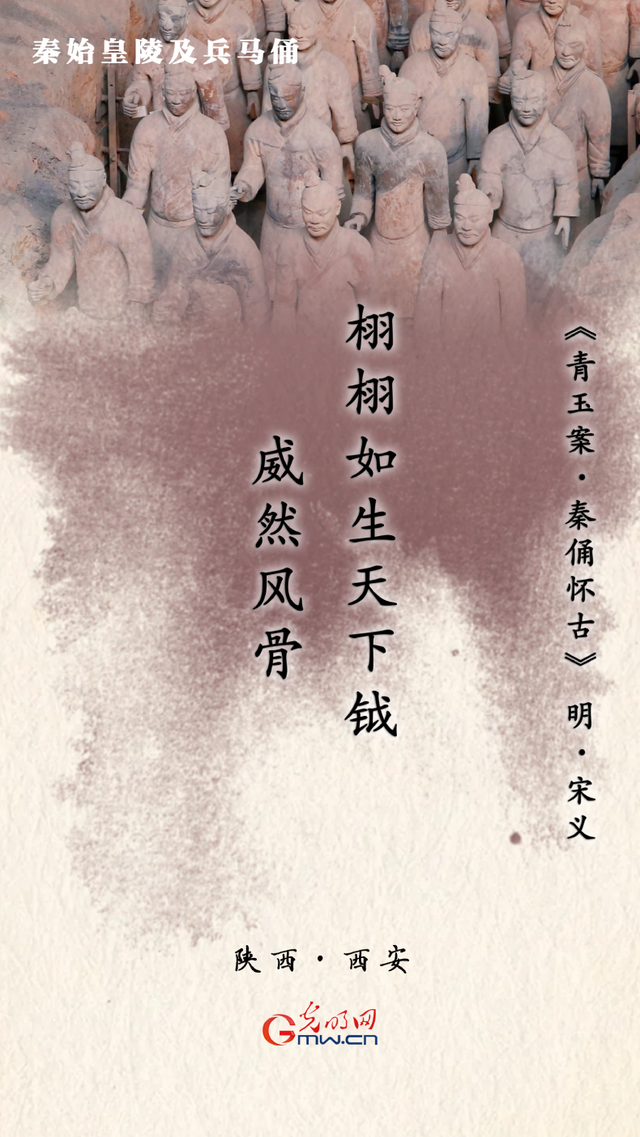 秦始皇陵及兵马俑
《青玉案·秦俑怀古》 明·宋义
栩栩如生天下钺
威然风骨
陕西·西安
光明网
GMW.CN